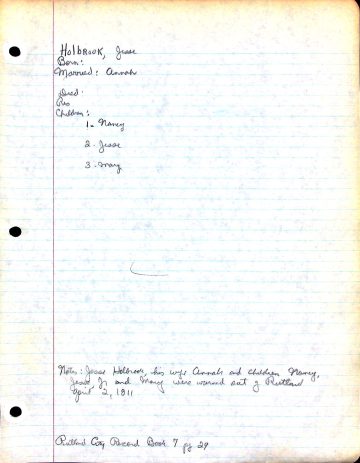 Holbrook, Jesse
Born:
Married: Annah
Died:
Res
Children:
1- Nancy
2- Jesse
3- Mary
Notes: Jesse Holbrook, his wife Annah and children Nancy,
Jesse Jr and Mary were warned out of Rutland
April 2, 1811
Rutland Record Book 7 pg 29